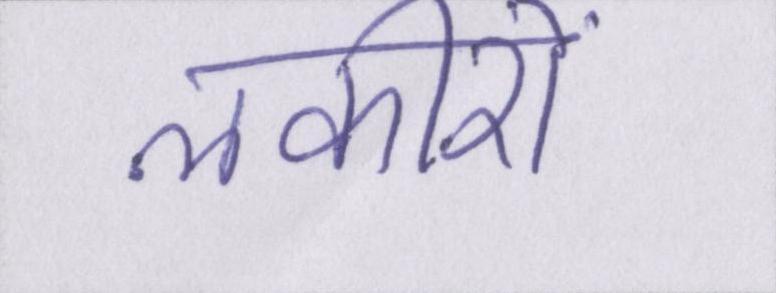 लकीरों